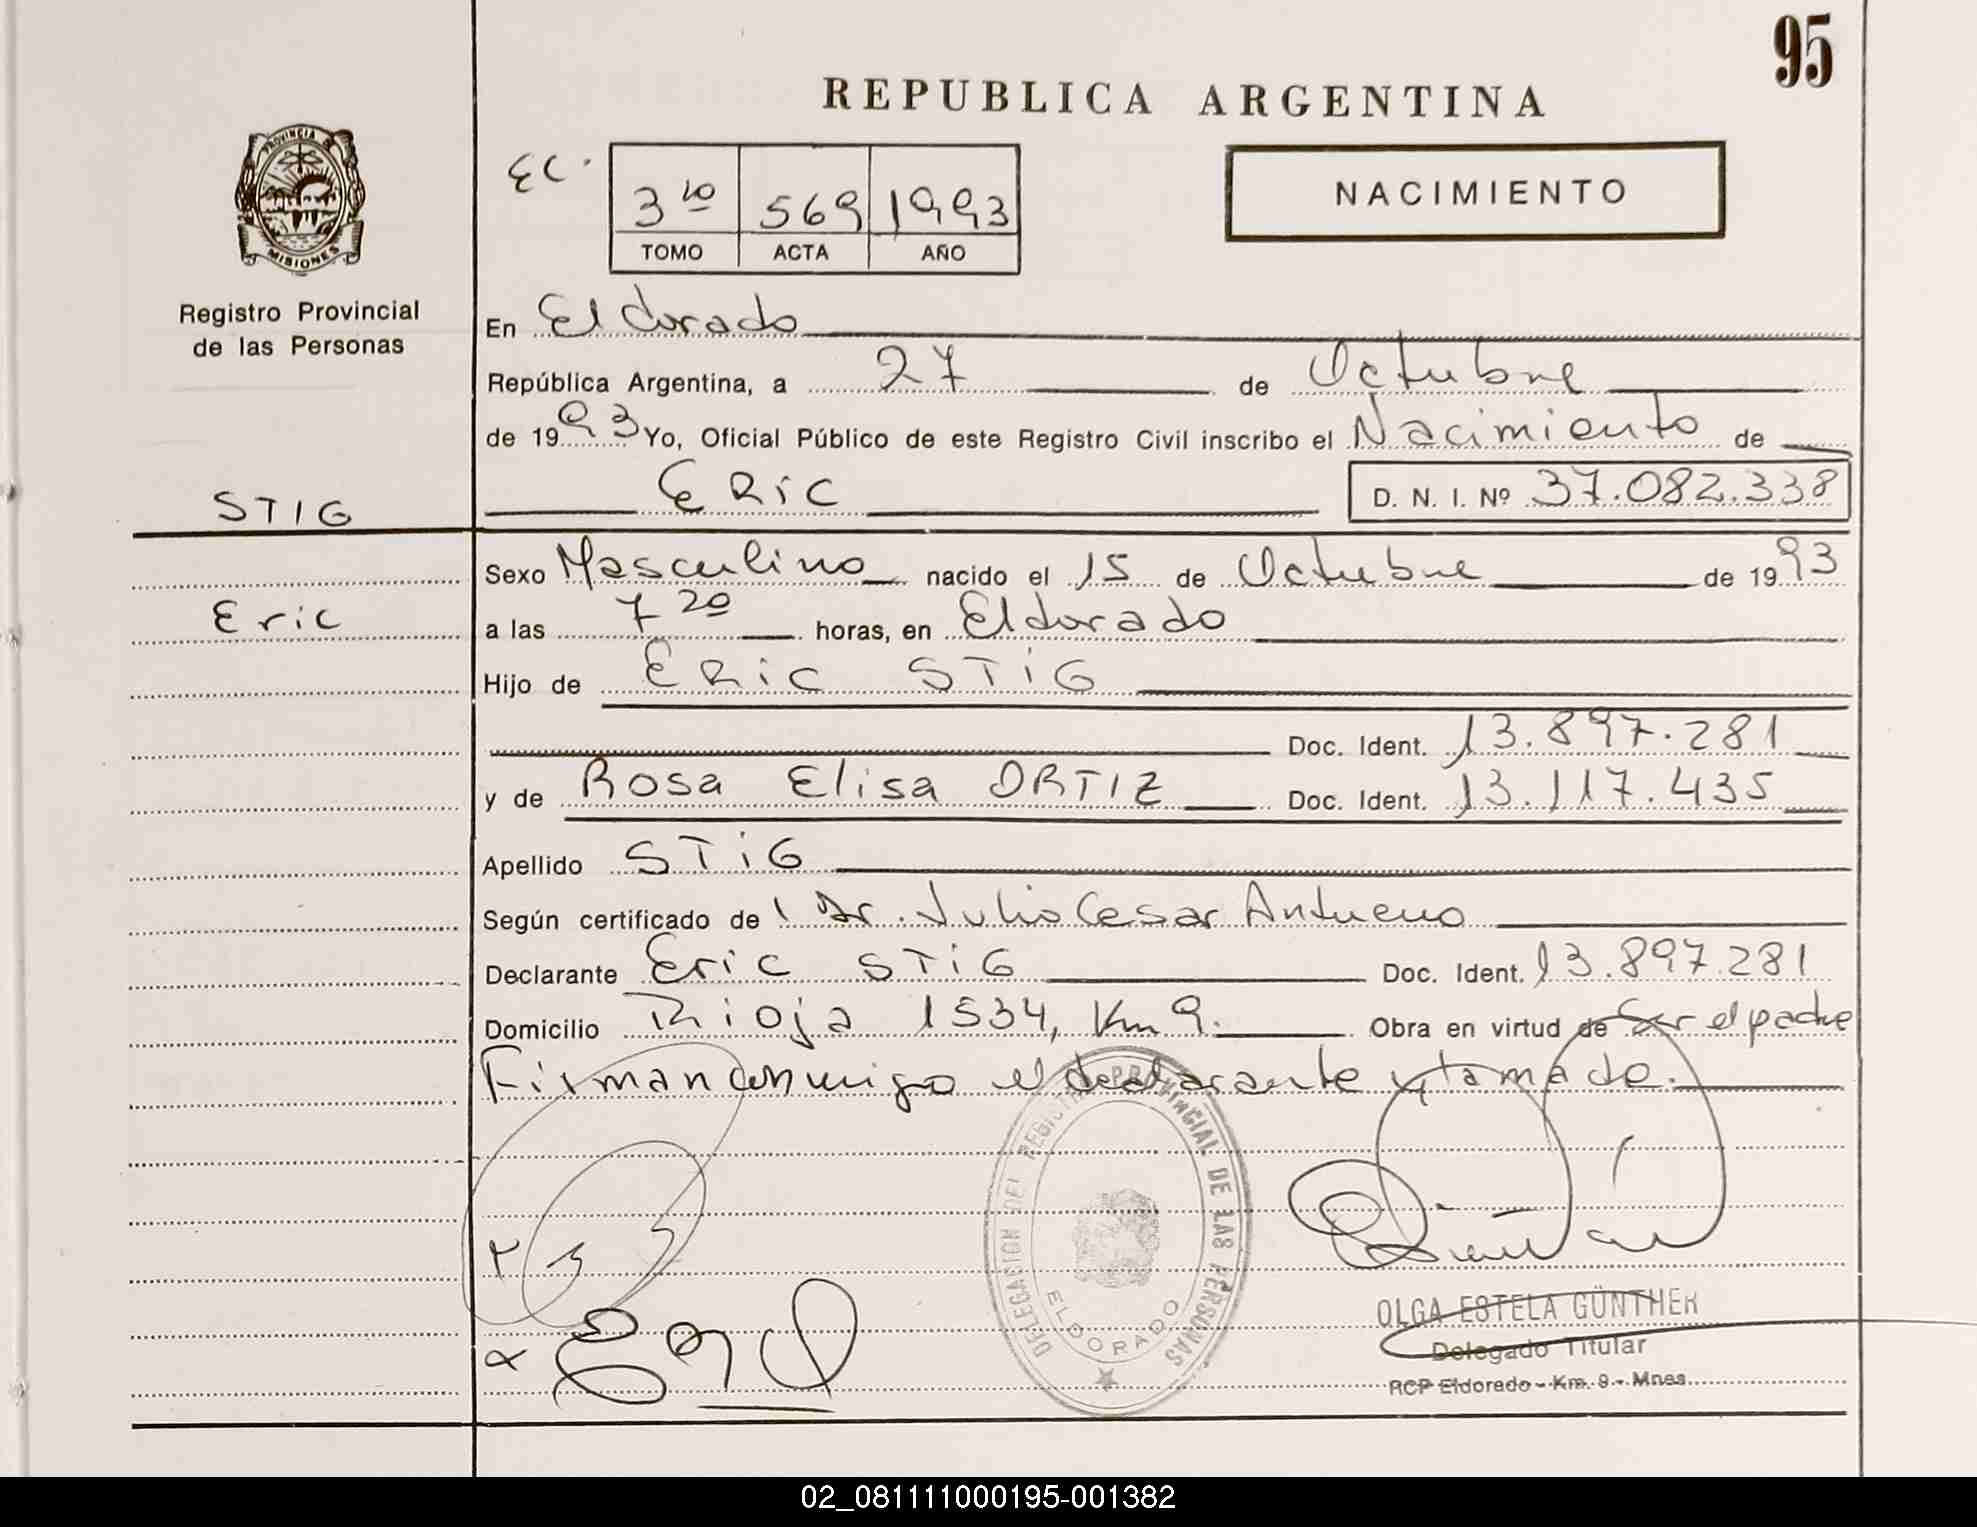 95
REPUBLICA ARGENTINA
PROVINCIA DE
MISIONES
Registro Provincial
de las Personas
EC.
3ro 569 1993
TOMO ACTA AÑO
NACIMIENTO
En Eldorado
República Argentina, a 27 de Octubre
de 1993 Yo, Oficial Público de este Registro Civil inscribo el Nacimiento de
STIG
ERiC D. N. I. Nº 37.082.338
Sexo Masculino nacido el 15 de Octubre de 1993
Eric
a las 7 20 horas, en Eldorado
Hijo de ERiC STiG
Doc. Ident. 13.897.281
y de Rosa Elisa ORTIZ Doc. Ident. 13.117.435
Apellido STiG
Según certificado de Dr. Julio Cesar Antueno
Declarante Eric STiG Doc. Ident. 13.897.281
Domicilio Rioja 1534, Km 9. Obra en virtud de Ser el padre
Firman conmigo el declarante y tomado.
DELEGACION DEL REGISTRO PROVINCIAL DE LAS PERSONAS
ELDORADO
OLGA ESTELA GÜNTHER
Delegado Titular
RCP Eldorado - Km. 9 - Mnes.
02_081111000195-001382